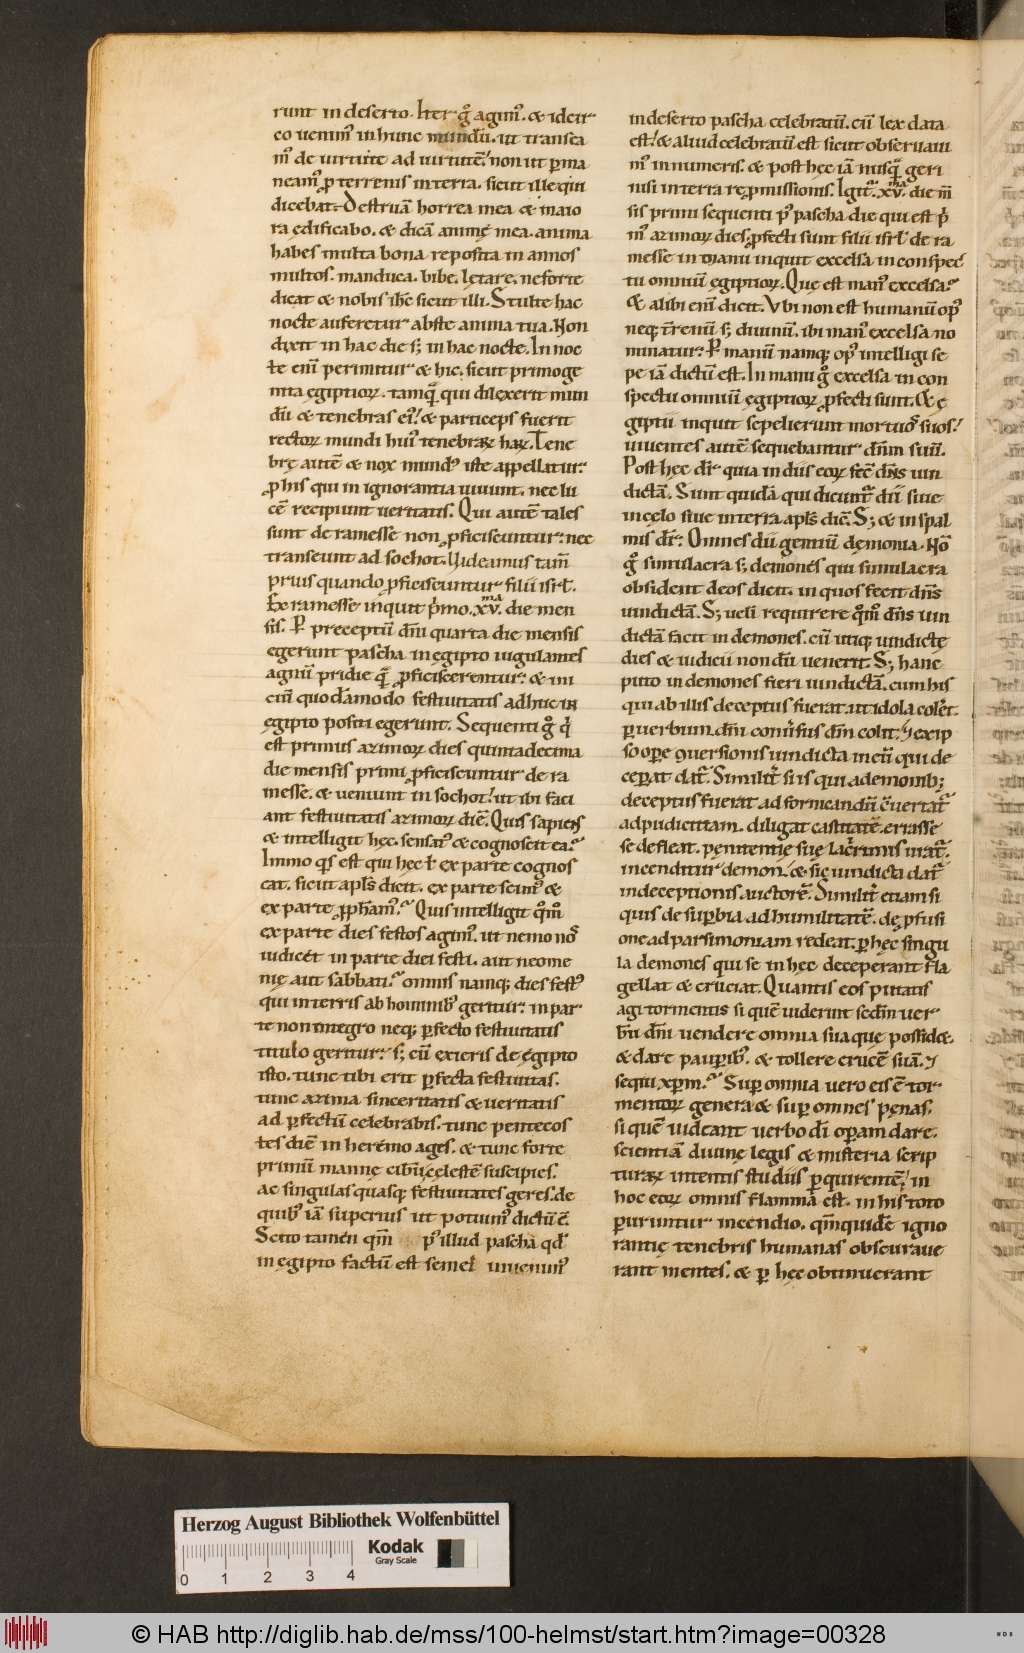 runt in deserto. Iter g̊ agim᷒. & idcir
co venim᷒ in hunc mundū. ut transea
m᷒ de uirtute ad uirtutē. non ut ꝑma
neam᷒ ꝓ terrenis in terra. sicut ille qui
dicebat. Destruā horrea mea & maio
ra ędificabo. & dicā animę meę. anima
habes multa bona reposita in annos
multos. manduca. bibe. lętare. ne forte
dicat & nobis ih̄c sicut illi. Stulte hac
nocte auferetur abs te anima tua. Non
dixit in hac die s; in hac nocte. In noc
te eni᷒ perimitur & hic. sicut primoge
nita egiptioꝝ. tamq̄ qui dilexerit mun
dū & tenebras ei᷒. & particeps fuerit
rectoꝝ mundi hui᷒ tenebraꝝ haꝝ. Tene
brę autē & nox mund᷒ iste appellatur.
ꝓ his qui in ignorantia uiuunt. nec lu
cē recipiunt ueritatis. Qui autē tales
sunt de ramesse non ꝓficiscuntur. nec
transeunt ad sochot. Uideamus tam̄
prius quando ꝓficiscuntur filii isrł.
Ex ramesse inquit p̄mo. xv.ma die men
sis. P preceptū dn̄i quarta die mensis
egerunt pascha in egipto iugulantes
agnū pridie q̄ ꝓficiscerentur. & ini
ciū quodāmodo festiuitatis adhuc in
egipto positi egerunt. Sequenti g̊ q̄
est primus azimoꝝ dies quintadecima
die mensis primi ꝓficiscuntur de ra
messe. & ueniunt in sochot. ut ibi faci
ant festiuitatis azimoꝝ diē. Quis sapiens
& intelligit hęc. sensat᷒ & cognoscit ea?
Immo q̄s est qui hęc ł ex parte cognos
cat. sicut apl̄s dicit. ex parte scim᷒ &
ex parte ꝓph̄am᷒? Quis intelligit qm̄
ex parte dies festos agim᷒. ut nemo nos
iudicet in parte diei festi. aut neome
nię aut sabbati? omnis namq; dies fest᷒
qui in terris ab hominib᷒ geritur. in par
te non integro neq; ꝑfecto festiuitatis
titulo geritur. s; cū exieris de egipto
isto. tunc tibi erit ꝑfecta festiuitas.
tunc azima sinceritatis & ueritatis
ad ꝑfectū celebrabis. tunc pentecos
tes diē in heremo ages. & tunc forte
primū mannę cibū cęlestē suscipies.
Ac singulas quasq; festiuitates geres. de
quib᷒ iā superius ut potuim᷒ dictū ē.
Scito tamen qm̄ p᷒ illud pascha qd̄
in egipto factū est semel inuenim᷒
in deserto pascha celebratū. cū lex data
est. & aliud celebratū est sicut obseruaui
m᷒ in numeris. & post hęc iā nusq̄ geri
nisi in terra repromissionis. Igit᷑. xv.ma die m̄
sis primi sequenti p᷒ pascha die qui est p̄
m᷒ azimoꝝ dies. ꝓfecti sunt filii isrł de ra
messe in manu inquit excelsa in conspec
tu omniū egiptioꝝ. Quę est man᷒ excelsa?
& alibi eni᷒ dicit. Ubi non est humanū op᷒
neq; t̄renū s; diuinū. ibi man᷒ excelsa no
minatur. P manū namq; op᷒ intelligi se
pe iā dictū est. In manu g̊ excelsa in con
spectu omniū egiptioꝝ ꝓfecti sunt. & e
giptii inquit sepelierunt mortuos suos.
uiuentes autē sequebantur dn̄m suū.
Post hęc dr̄ quia in diis eoꝝ fec̄ dn̄s uin
dictā. Sunt quidā qui dicunt᷑ dii siue
in cęlo siue in terra apl̄s dic̄. S; & in psal
mis dr̄. Omnes dii gentiū demonia. Nō
g̊ simulacra s; demones qui simulacra
obsident deos dicit. in quos fecit dn̄s
uindictā. S; ueli requirere qm̄o dn̄s uin
dictā facit in demones. cū utiq; uindictę
dies & iudicii nondū uenerit. S; hanc
puto in demones fieri uindictā. cum his
qui ab illis deceptus fuerat ut idola coler̄t.
ꝑ uerbum dn̄i conuersus dn̄m colit. & ex ip
so opere ꝯuersionis uindicta in eū qui de
ceperat dat᷑. Similit᷑ si is qui a demonib;
deceptus fuerat ad fornicandū c̄uertat᷑
ad pudicitiam. diligat castitatē. errasse
se defleat. penitentię suę lacrimis urat᷑.
incenditur demon. & sic uindicta dat᷑
in deceptionis auctorē. Similit᷑ etiam si
quis de suꝑbia ad humilitatē. de ꝓfusi
one ad parsimoniam redeat. ꝑ hęc singu
la demones qui se in hęc deceperant fla
gellat & cruciat. Quantis eos putatis
agi tormentis si quē uiderint secdm̄ uer
bū dn̄i uendere omnia sua que possid&.
& dare pauꝑib᷒. & tollere crucē suā. &
sequi xp̄m? Suꝑ omnia uero eis ē tor
mentoꝝ genera & suꝑ omnes pęnas.
si quē uideant uerbo dī operam dare.
scientiā diuinę legis & misteria scrip
turaꝝ intentis studiis ꝑquirentē. in
hoc eoꝝ omnis flamma est. in his toto
ꝑuruntur incendio. qm̄ quidē igno
rantię tenebris humanas obscuraue
rant mentes. & ꝑ hęc obtinuerant
Herzog August Bibliothek Wolfenbüttel
Kodak
Gray Scale
0 1 2 3 4
© HAB http://diglib.hab.de/mss/100-helmst/start.htm?image=00328